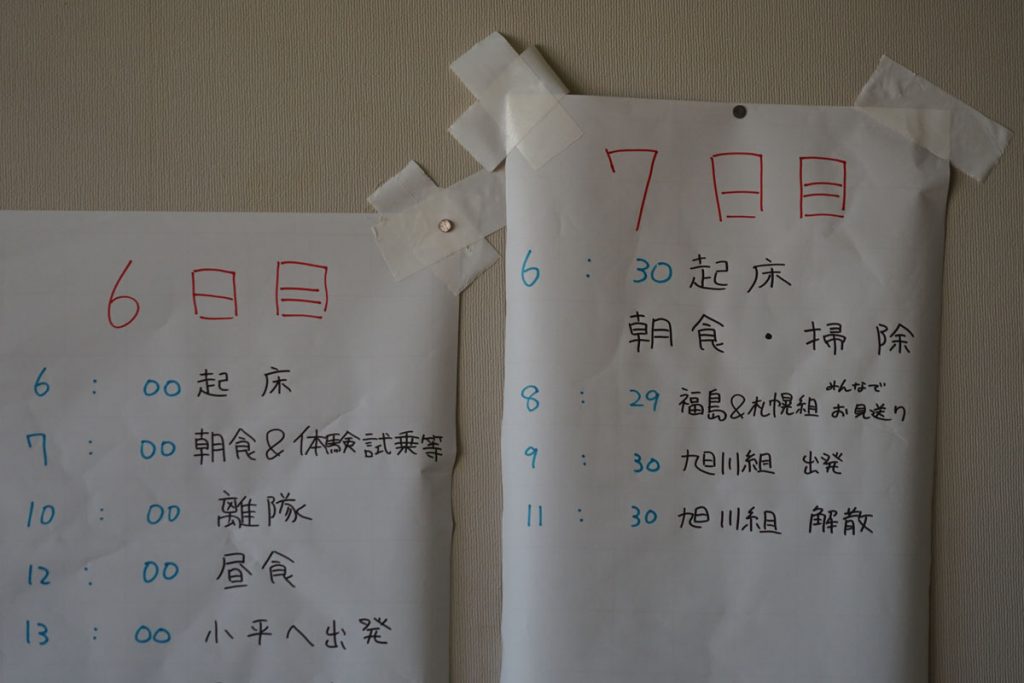 6日目
6:00 起床
7:00 朝食&体験試乗等
10:00 離隊
12:00 昼食
13:00 小平へ出発
7日目
6:30 起床
朝食・掃除
8:29 福島&札幌組 みんなでお見送り
9:30 旭川組 出発
11:30 旭川組 解散